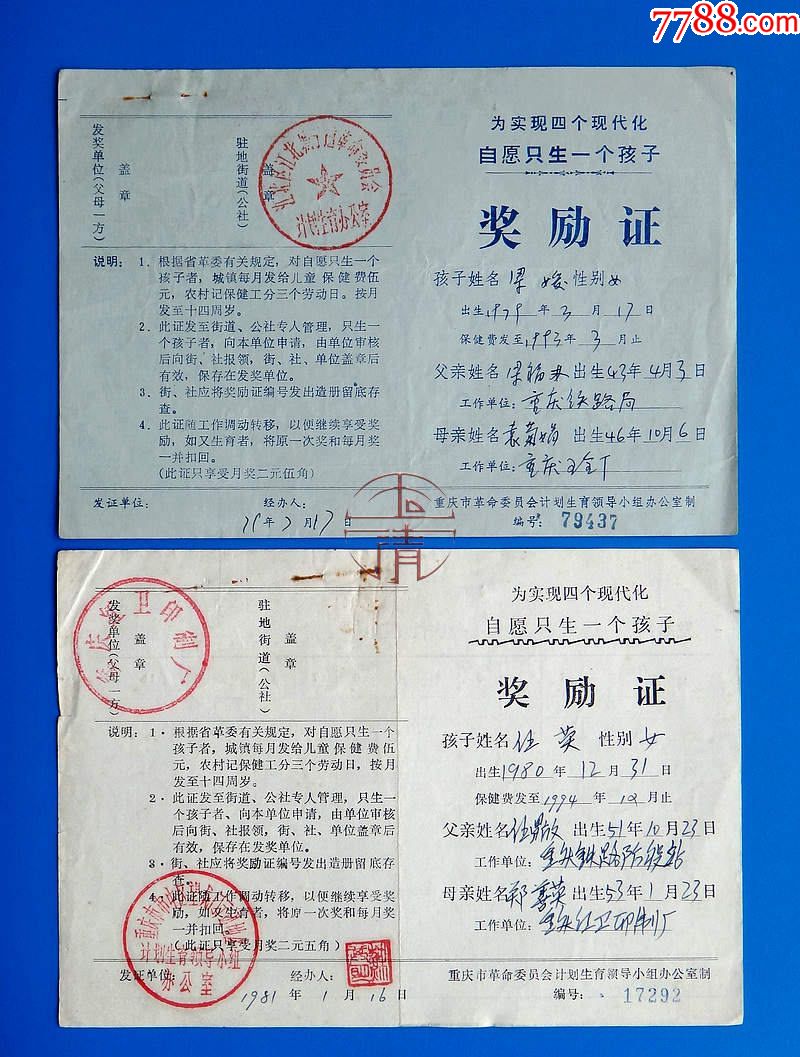 7788.com
为实现四个现代化
自愿只生一个孩子
奖励证
孩子姓名 梁 性别 女
出生 1979 年 3 月 17 日
保健费发至 1993 年 3 月止
父亲姓名 梁 出生 43 年 4 月 3 日
工作单位: 重庆铁路局
母亲姓名 袁 出生 46 年 10 月 6 日
工作单位: 重庆
重庆市革命委员会计划生育领导小组办公室制
编号: 79437
发奖单位(父母一方)
盖章
驻地街道(公社)
盖章
革命委员会
计划生育办公室
说明: 1. 根据省革委有关规定,对自愿只生一个
孩子者,城镇每月发给儿童保健费伍
元,农村记保健工分三个劳动日。按月
发至十四周岁。
2. 此证发至街道、公社专人管理,只生一
个孩子者,向本单位申请,由单位审核
后向街、社报领,街、社、单位盖章后
有效,保存在发奖单位。
3. 街、社应将奖励证编号发出造册留底存
查。
4. 此证随工作调动转移,以便继续享受奖
励,如又生育者,将原一次奖和每月奖
一并扣回。
(此证只享受月奖二元伍角)
发证单位: 经办人:
年 月 17 日
上清
为实现四个现代化
自愿只生一个孩子
奖励证
孩子姓名 任英 性别 女
出生 1980 年 12 月 31 日
保健费发至 1994 年 12 月止
父亲姓名 任 出生 51 年 10 月 23 日
工作单位: 重庆铁路
母亲姓名 郑 英 出生 53 年 1 月 23 日
工作单位: 重庆红卫印制厂
重庆市革命委员会计划生育领导小组办公室制
编号: 17292
发奖单位(父母一方)
盖章
驻地街道(公社)
盖章
重庆红卫印制厂
说明: 1. 根据省革委有关规定,对自愿只生一个
孩子者,城镇每月发给儿童保健费伍
元,农村记保健工分三个劳动日,按月
发至十四周岁。
2. 此证发至街道、公社专人管理,只生一
个孩子者、向本单位申请,由单位审核
后向街、社报领,街、社、单位盖章后
有效,保存在发奖单位。
3. 街、社应将奖励证编号发出造册留底存
查。
4. 此证随工作调动转移,以便继续享受奖
励,如又生育者,将原一次奖和每月奖
一并扣回。
(此证只享受月奖二元五角)
重庆市
计划生育领导小组
办公室
发证单位: 经办人:
1981 年 1 月 16 日